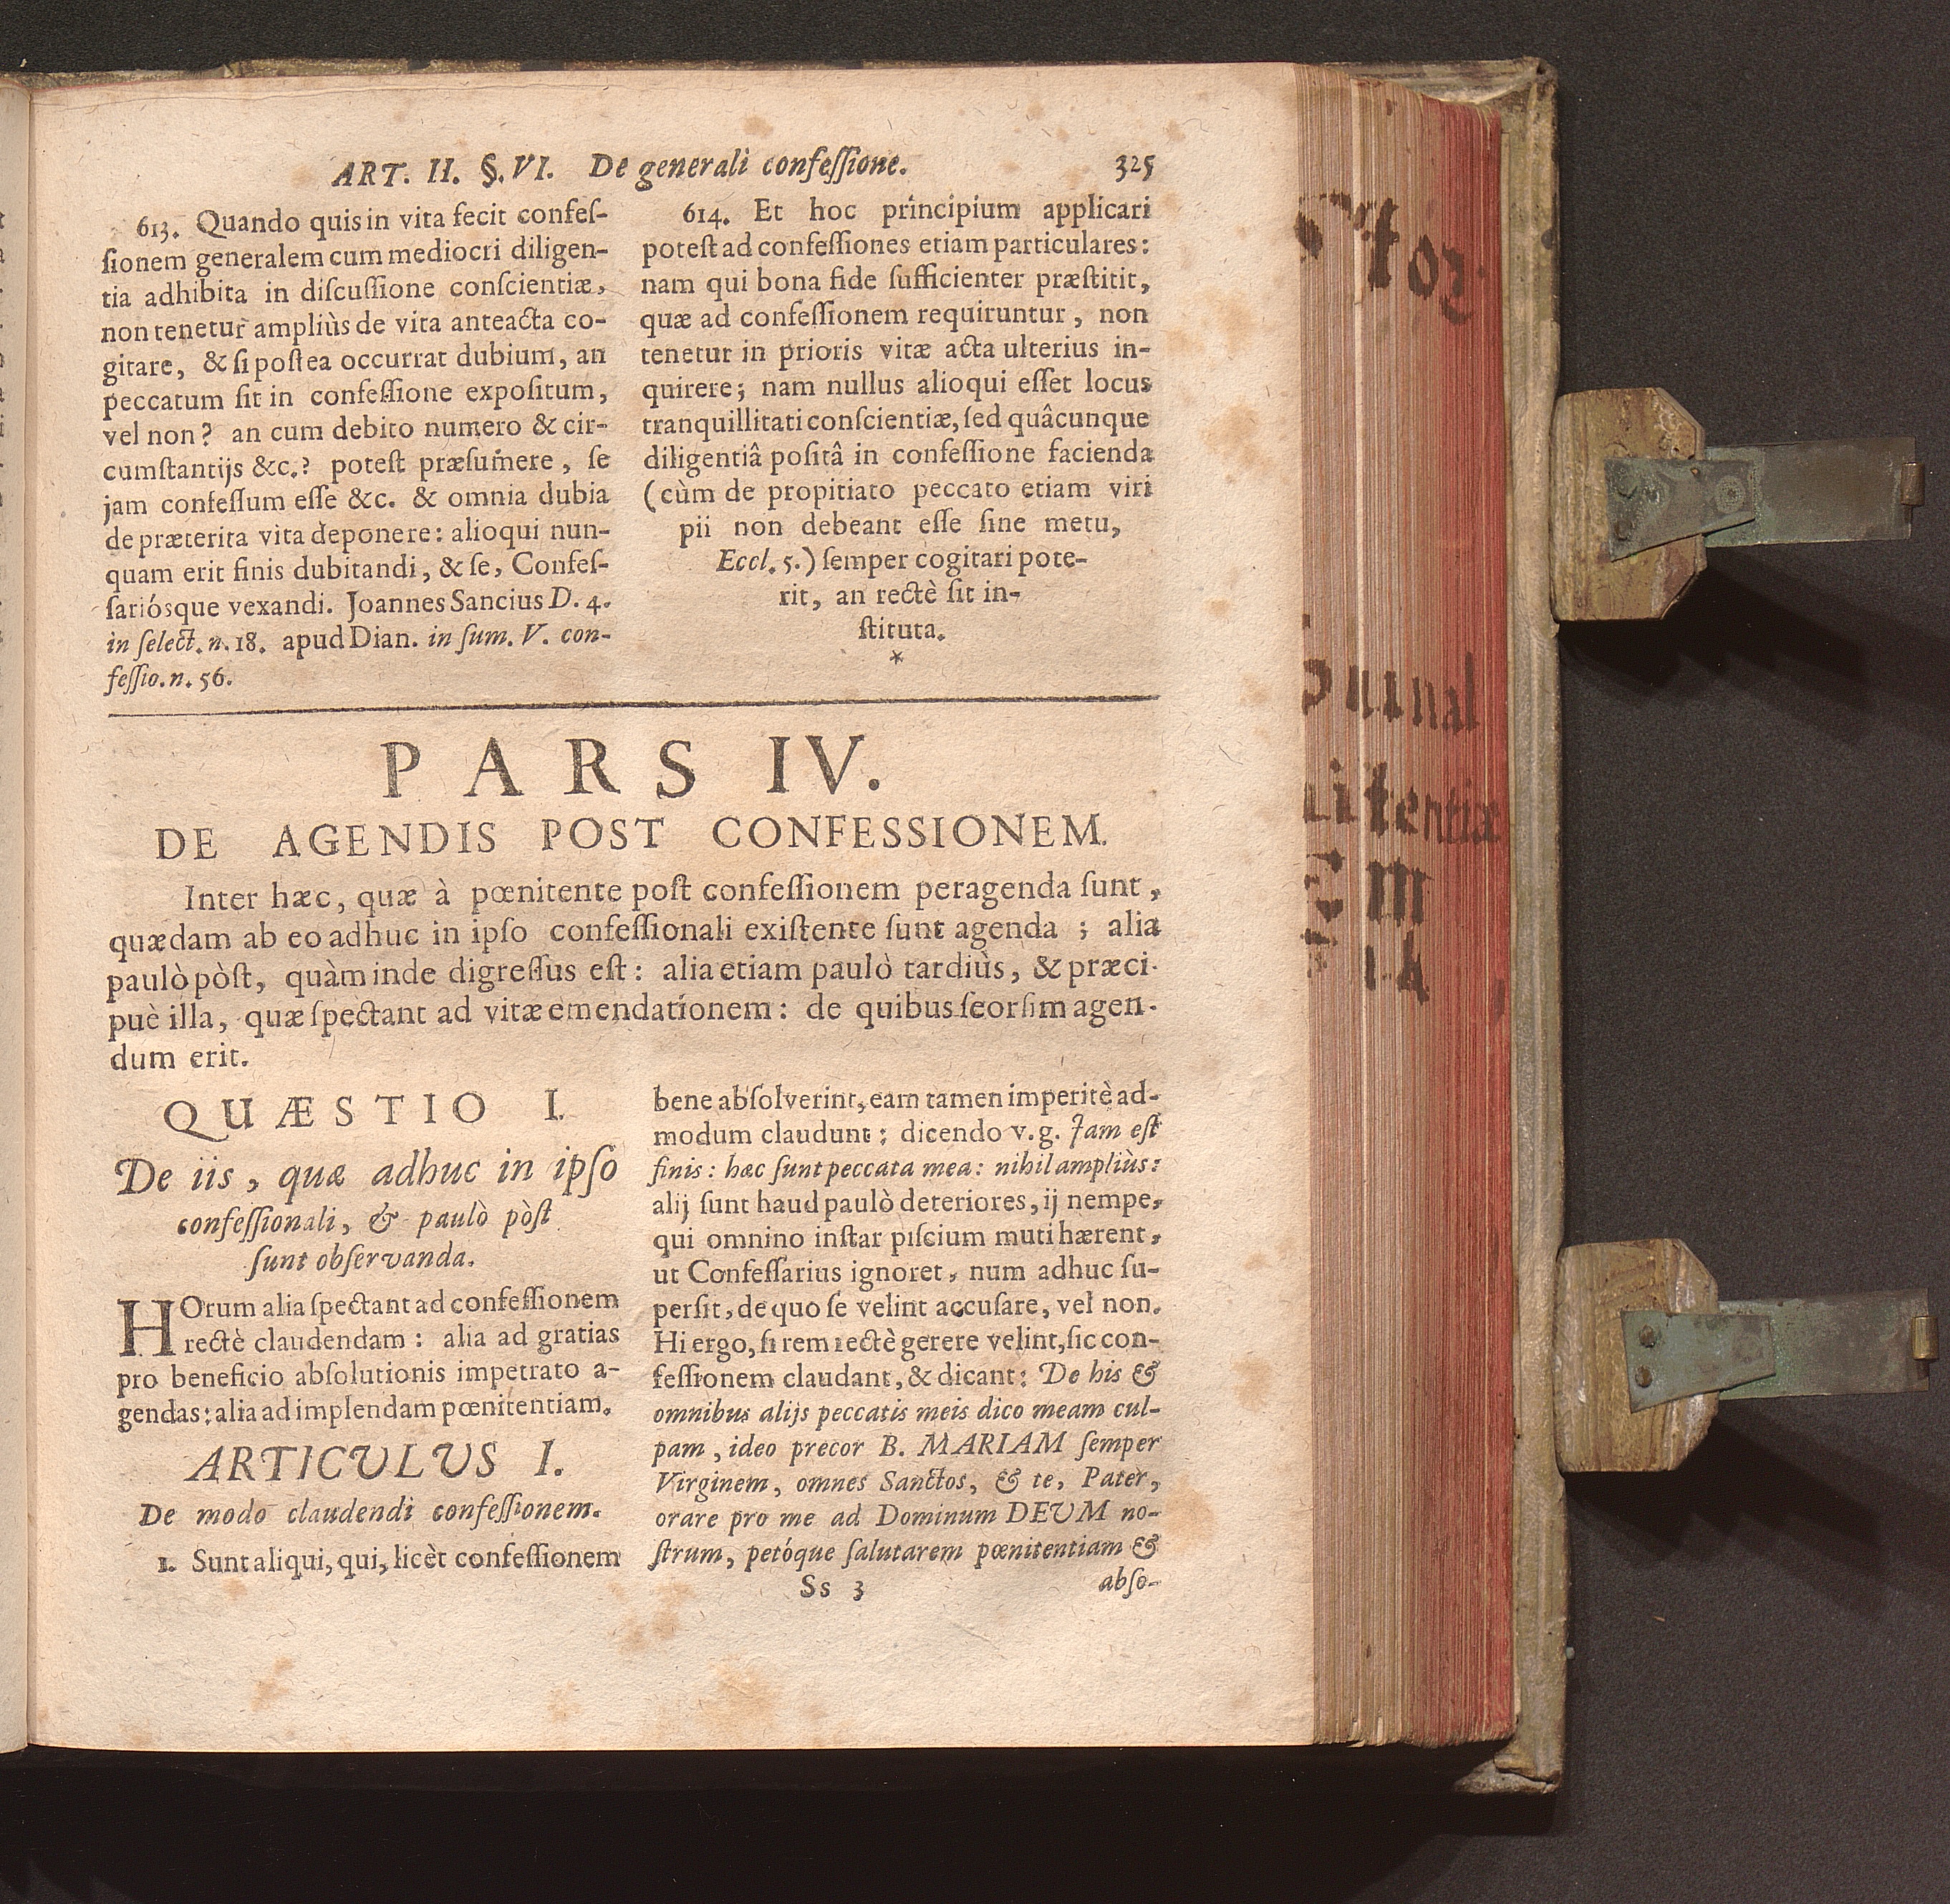 ART. II. §. VI. De generali confeſſione. 325
613. Quando quis in vita fecit confeſ-
ſionem generalem cum mediocri diligen-
tia adhibita in diſcuſſione conſcientiæ,
non tenetur ampliùs de vita anteacta co-
gitare, & ſi poſtea occurrat dubium, an
peccatum ſit in confeſſione expoſitum,
vel non? an cum debito numero & cir-
cumſtantijs &c.? poteſt præſumere, ſe
jam confeſſum eſſe &c. & omnia dubia
de præterita vita deponere: alioqui nun-
quam erit finis dubitandi, & ſe, Confeſ-
ſariósque vexandi. Joannes Sancius D. 4.
in ſelect. n. 18. apud Dian. in ſum. V. con-
feſſio. n. 56.
614. Et hoc principium applicari
poteſt ad confeſſiones etiam particulares:
nam qui bona fide ſufficienter præſtitit,
quæ ad confeſſionem requiruntur, non
tenetur in prioris vitæ acta ulterius in-
quirere; nam nullus alioqui eſſet locus
tranquillitati conſcientiæ, ſed quâcunque
diligentiâ poſitâ in confeſſione facienda
(cùm de propitiato peccato etiam viri
pii non debeant eſſe ſine metu,
Eccl. 5.) ſemper cogitari pote-
rit, an rectè ſit in-
ſtituta.
*
PARS IV.
DE AGENDIS POST CONFESSIONEM.
Inter hæc, quæ à pœnitente poſt confeſſionem peragenda ſunt,
quædam ab eo adhuc in ipſo confeſſionali exiſtente ſunt agenda; alia
paulò pòſt, quàm inde digreſſus eſt: alia etiam paulò tardiùs, & præci-
puè illa, quæ ſpectant ad vitæ emendationem: de quibus ſeorſim agen-
dum erit.
QUÆSTIO I.
De iis, quæ adhuc in ipſo
confeſſionali, & paulò pòſt
ſunt obſervanda.
HOrum alia ſpectant ad confeſſionem
rectè claudendam: alia ad gratias
pro beneficio abſolutionis impetrato a-
gendas: alia ad implendam pœnitentiam.
ARTICULUS I.
De modo claudendi confeſſionem.
1. Sunt aliqui, qui, licèt confeſſionem
bene abſolverint, eam tamen imperitè ad-
modum claudunt; dicendo v. g. Jam eſt
finis: hæc ſunt peccata mea: nihil ampliùs:
alij ſunt haud paulò deteriores, ij nempe,
qui omnino inſtar piſcium muti hærent,
ut Confeſſarius ignoret, num adhuc ſu-
perſit, de quo ſe velint accuſare, vel non.
Hi ergo, ſi rem rectè gerere velint, ſic con-
feſſionem claudant, & dicant: De his &
omnibus alijs peccatis meis dico meam cul-
pam, ideo precor B. MARIAM ſemper
Virginem, omnes Sanctos, & te, Pater,
orare pro me ad Dominum DEUM no-
ſtrum, petóque ſalutarem pœnitentiam &
Ss 3 abſo-